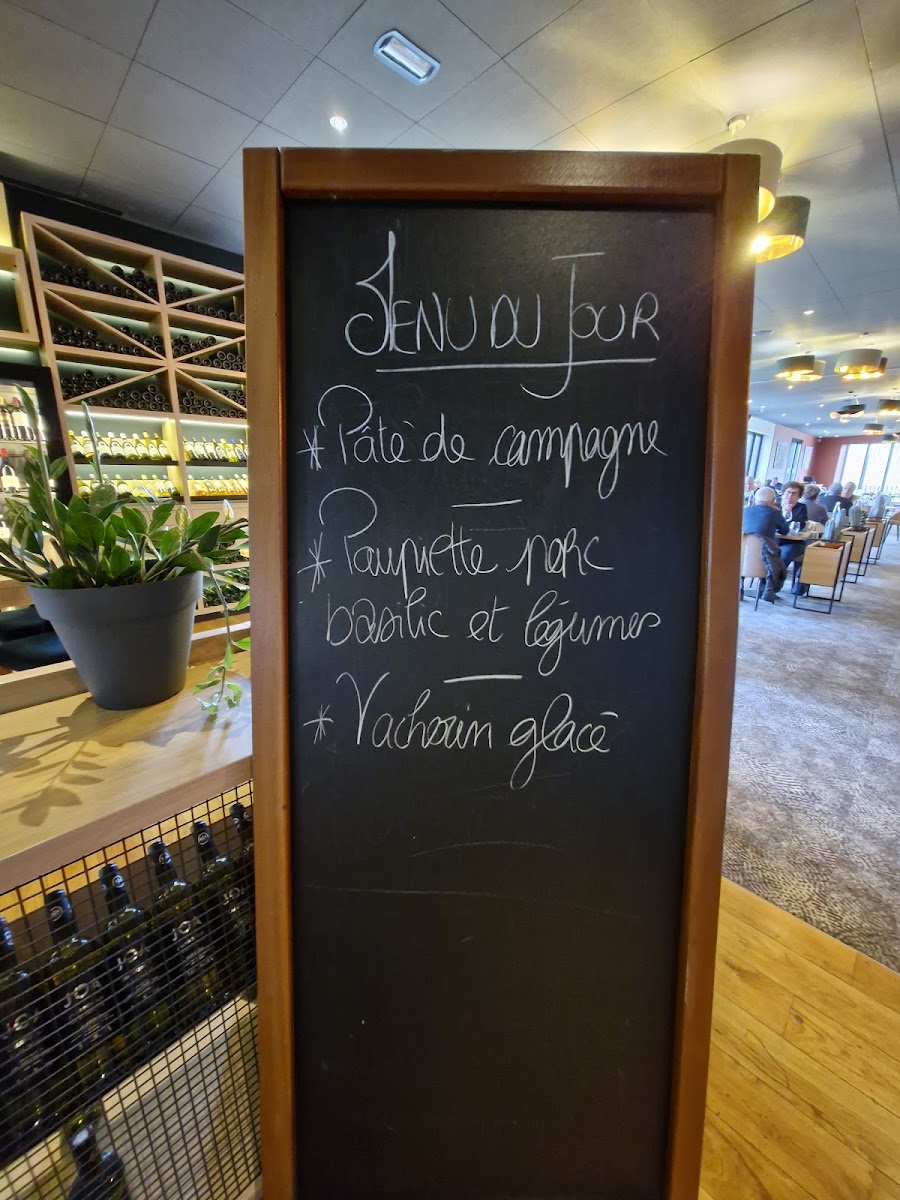 MENU DU JOUR
* Pâté de campagne
—
* Paupiette porc
basilic et légumes
—
* Vacherin glacé
JOA
JOA
JOA
JOA
JOA